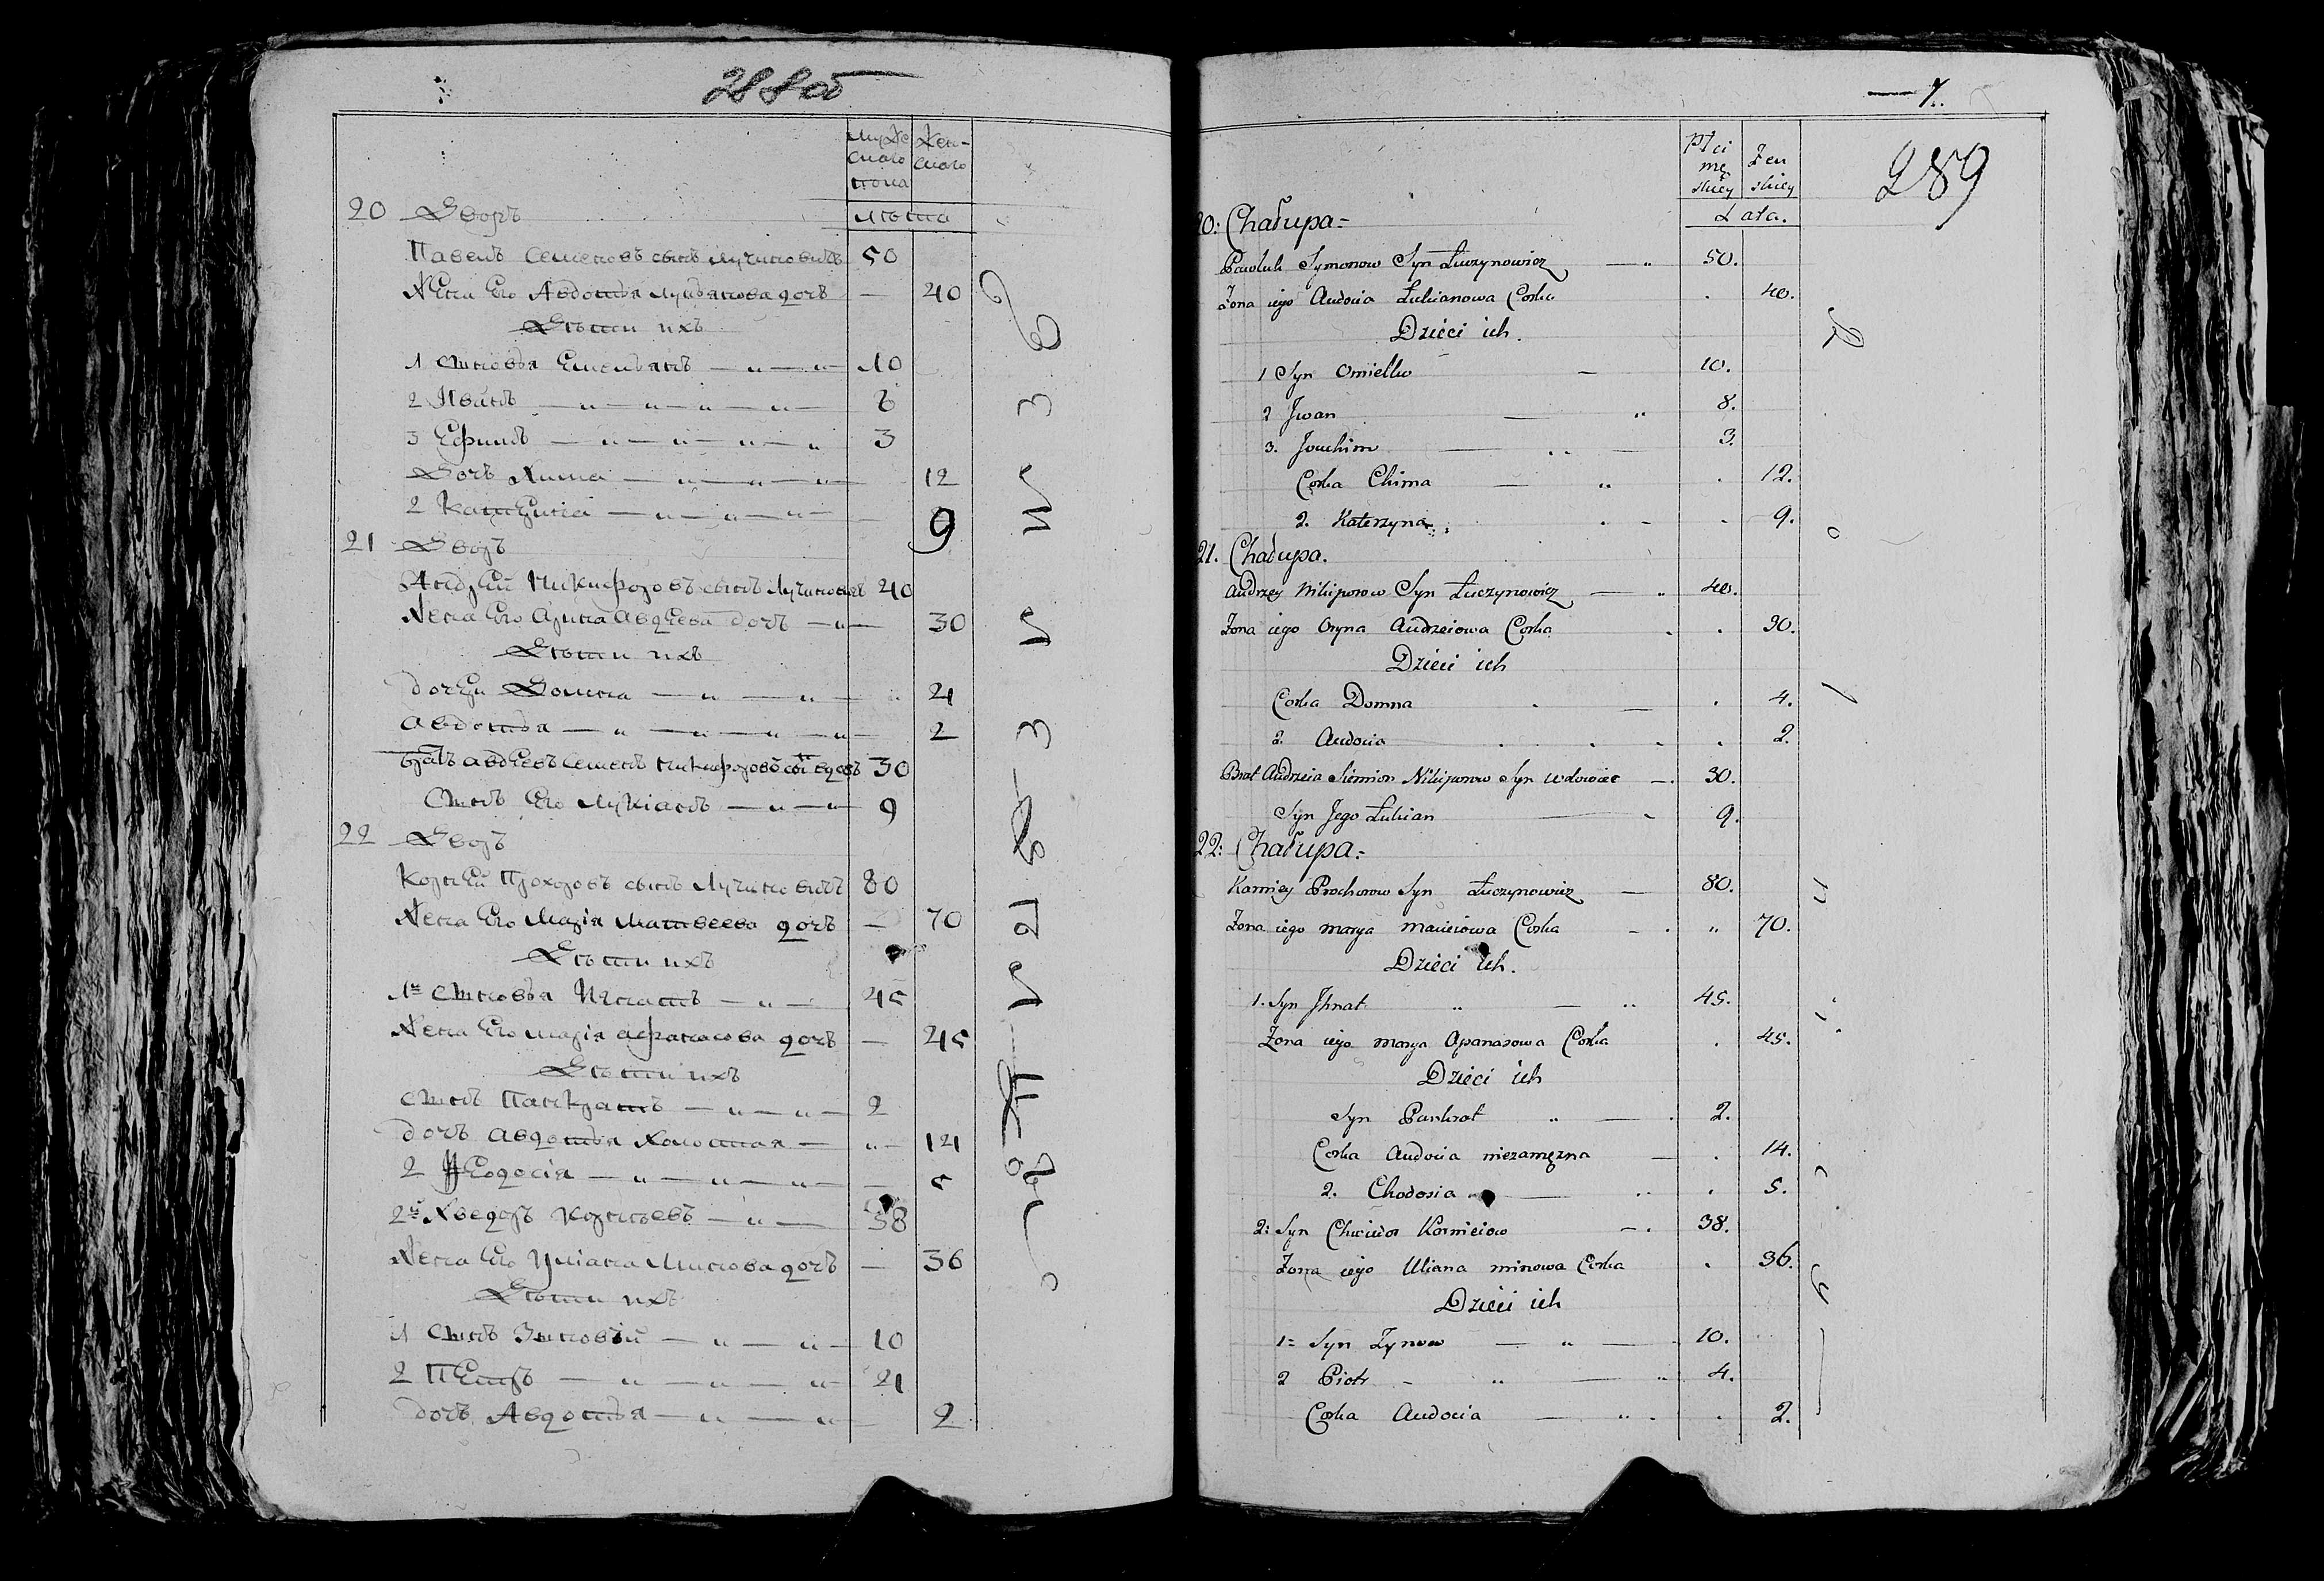 288об
Мужескаго пола
Женскаго
Лѣта
20 Дворъ
Павелъ Семеновъ сынъ Лучиновичъ 50
Жена Его Авдотья Лукьянова дочь — 40
Дѣти ихъ
1 Сыновья Емельянъ — „ — „ 10
2 Иванъ — „ — „ — „ — „ — 8
3 Ефимъ — „ — „ — „ — „ 3
Дочь Хима — „ — „ — „ — 12
2 Катерина — „ — „ — „ — 9
21 Дворъ
Андрей Никифоровъ сынъ Лучиновичъ 40
Жена Его Арина Авдеева дочь — „ — 30
Дѣти ихъ
дочери Домна — „ — „ — 4
Авдотья — „ — „ — „ — „ — 2
братъ Авдеевъ Семенъ Никифоровъ сынъ вдовъ 30
Сынъ Его Лукіанъ — „ — „ — 9
22 Дворъ
Корней Прохоровъ сынъ Лучиновичъ 80
Жена Его Марія Матвеева дочь — 70
Дѣти ихъ
1й Сыновья Игнатъ — „ — 45
Жена Его Марія Афанасова дочь — 45
Дѣти ихъ
Сынъ Панкратъ — „ — „ — 2
дочь Авдотья Холостая — „ — 14
2 Феодосія — „ — „ — „ — 5
2й Хведоръ Корнѣевъ — „ — 38
Жена Его Уліана Минова дочь — 36
Дѣти ихъ
1 Сынъ Зыновій — „ — „ — 10
2 Петръ — „ — „ — „ — 4
дочь Авдотья — „ — „ — 2
— 7.
289
Płci męskiey
Żeńskiey
Lata.
20: Chałupa =
Pawluk Symonow Syn Łuczynowicz — „ 50.
Żona iego Audocia Łukianowa Corka . 40.
Dzieci ich.
1 Syn Omielko — 10.
2 Jwan — „ 8.
3. Joachim — „ — 3.
Corka Chima — „ . 12.
2. Katerzyna . - . 9.
21. Chałupa.
Andrzey Nikiporow Syn Łuczynowicz — . 40.
Żona iego Oryna Audzeiowa Corka . . 30.
Dzieci ich
Corka Domna . — . 4.
2. Audocia . . . . 2.
Brat Audzeia Siemion Nikiporow Syn wdowiec — . 30.
Syn Jego Łukian — - 9.
22: Chałupa =
Karniey Prochorow Syn Łuczynowicz — 80.
Żona iego Marya Macieiowa Corka - . „ 70.
Dzieci ich.
1. Syn Jhnat „ — „ 45.
Żona iego Marya Apanasowa Corka . 45.
Dzieci ich
Syn Pankrat „ — . 2.
Corka Audocia niezamęzna — . 14.
2. Chodosia „ — „ . 5.
2: Syn Chwiedor Karnieiow — . 38.
Żona iego Uliana Minowa Corka . 36.
Dzieci ich
1= Syn Zynow — „ — 10.
2 Piotr - „ — „ 4.
Corka Audocia — „ . . 2.